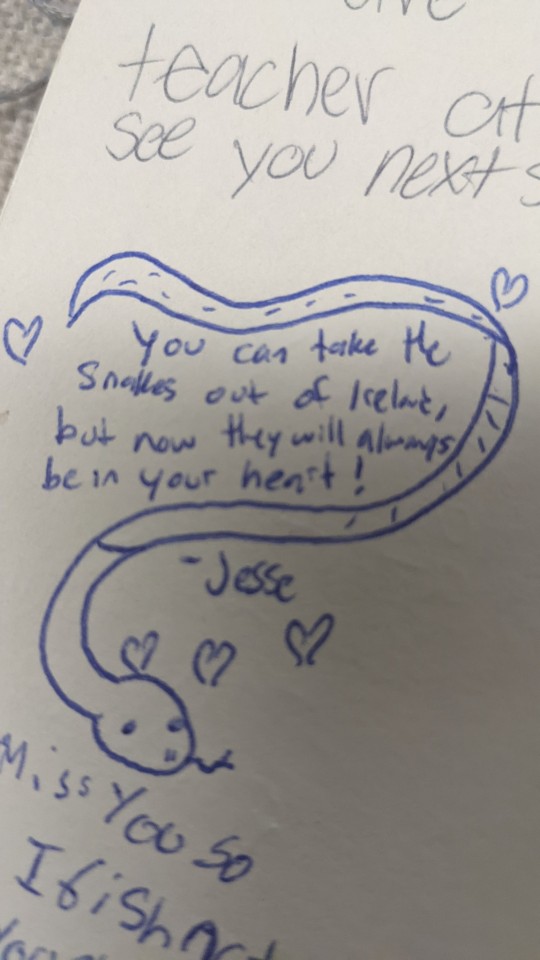 teacher at
see you next s
You can take the
Snakes out of Icelant,
but now they will always
be in your heart!
-Jesse
Miss You so